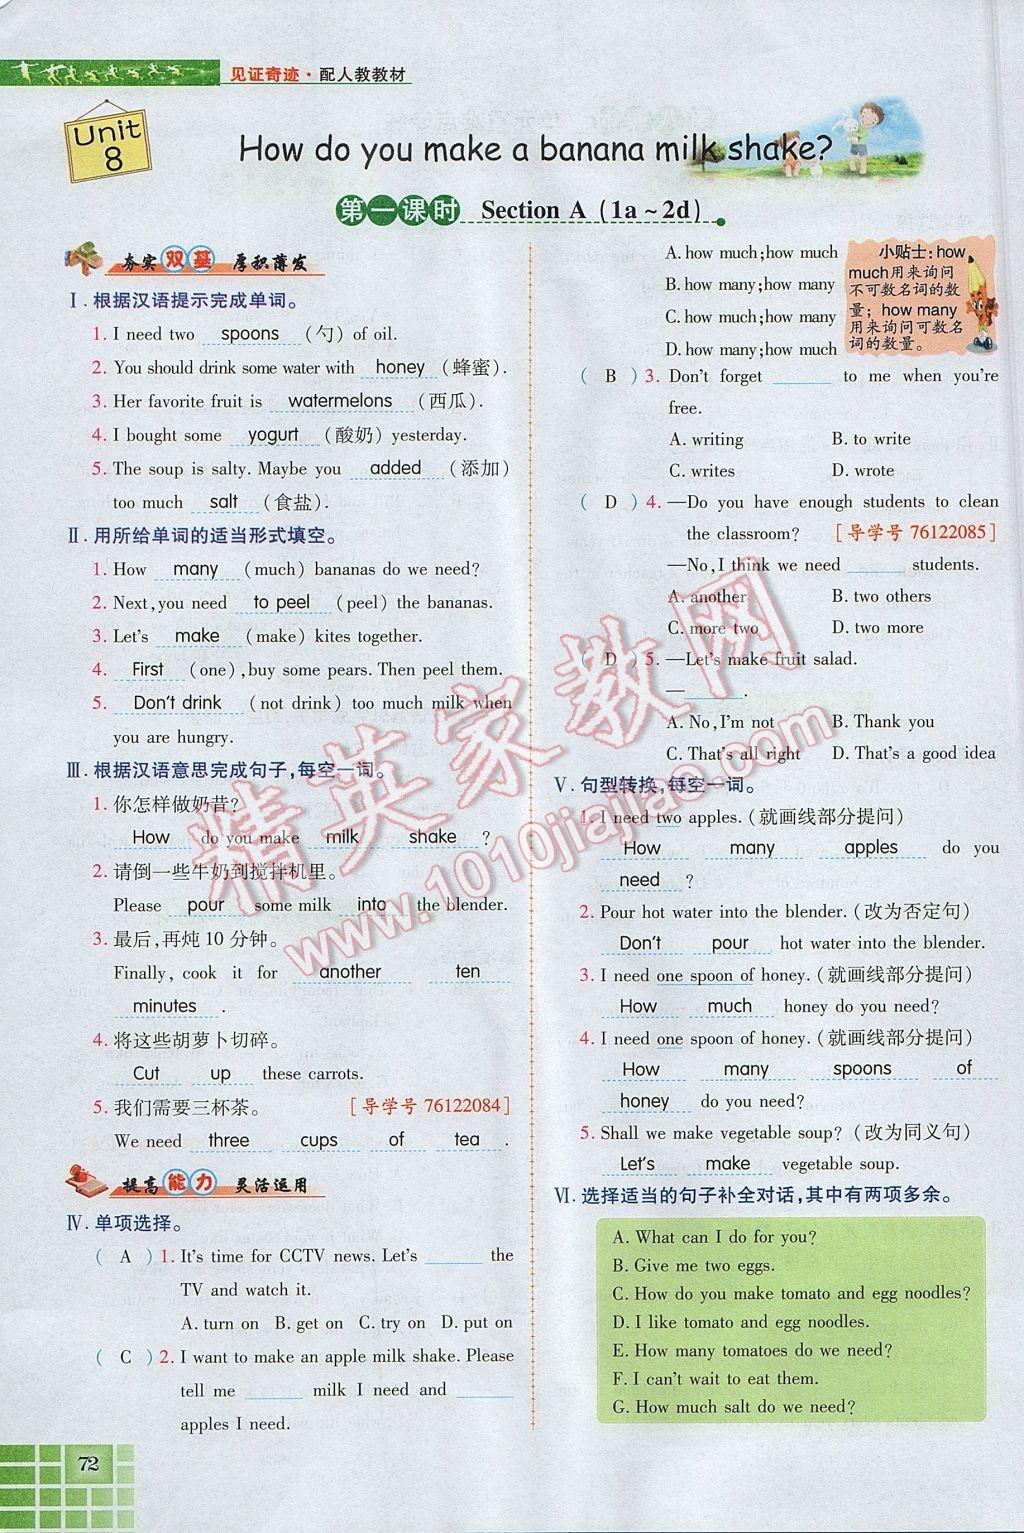 见证奇迹·配人教教材
Unit 8
How do you make a banana milk shake?
第一课时 Section A (1a~2d)
夯实 双基 厚积薄发
Ⅰ. 根据汉语提示完成单词。
1. I need two spoons (勺) of oil.
2. You should drink some water with honey (蜂蜜).
3. Her favorite fruit is watermelons (西瓜).
4. I bought some yogurt (酸奶) yesterday.
5. The soup is salty. Maybe you added (添加)
too much salt (食盐).
Ⅱ. 用所给单词的适当形式填空。
1. How many (much) bananas do we need?
2. Next, you need to peel (peel) the bananas.
3. Let's make (make) kites together.
4. First (one), buy some pears. Then peel them.
5. Don't drink (not drink) too much milk when
you are hungry.
Ⅲ. 根据汉语意思完成句子,每空一词。
1. 你怎样做奶昔?
How do you make milk shake ?
2. 请倒一些牛奶到搅拌机里。
Please pour some milk into the blender.
3. 最后,再炖 10 分钟。
Finally, cook it for another ten
minutes .
4. 将这些胡萝卜切碎。
Cut up these carrots.
5. 我们需要三杯茶。 [导学号 76122084]
We need three cups of tea .
提高 能力 灵活运用
Ⅳ. 单项选择。
( A )1. It's time for CCTV news. Let's ______ the
TV and watch it.
A. turn on B. get on C. try on D. put on
( C )2. I want to make an apple milk shake. Please
tell me ______ milk I need and ______
apples I need.
72
A. how much; how much
B. how many; how many
C. how much; how many
D. how many; how much
小贴士: how
much用来询问
不可数名词的数
量; how many
用来询问可数名
词的数量。
( B )3. Don't forget ______ to me when you're
free.
A. writing B. to write
C. writes D. wrote
( D )4. —Do you have enough students to clean
the classroom? [导学号 76122085]
—No, I think we need ______ students.
A. another B. two others
C. more two D. two more
( D )5. —Let's make fruit salad.
—______.
A. No, I'm not B. Thank you
C. That's all right D. That's a good idea
Ⅴ. 句型转换,每空一词。
1. I need two apples. (就画线部分提问)
How many apples do you
need ?
2. Pour hot water into the blender. (改为否定句)
Don't pour hot water into the blender.
3. I need one spoon of honey. (就画线部分提问)
How much honey do you need?
4. I need one spoon of honey. (就画线部分提问)
How many spoons of
honey do you need?
5. Shall we make vegetable soup? (改为同义句)
Let's make vegetable soup.
Ⅵ. 选择适当的句子补全对话,其中有两项多余。
A. What can I do for you?
B. Give me two eggs.
C. How do you make tomato and egg noodles?
D. I like tomato and egg noodles.
E. How many tomatoes do we need?
F. I can't wait to eat them.
G. How much salt do we need?
精英家教网
www.1010jiajiao.com